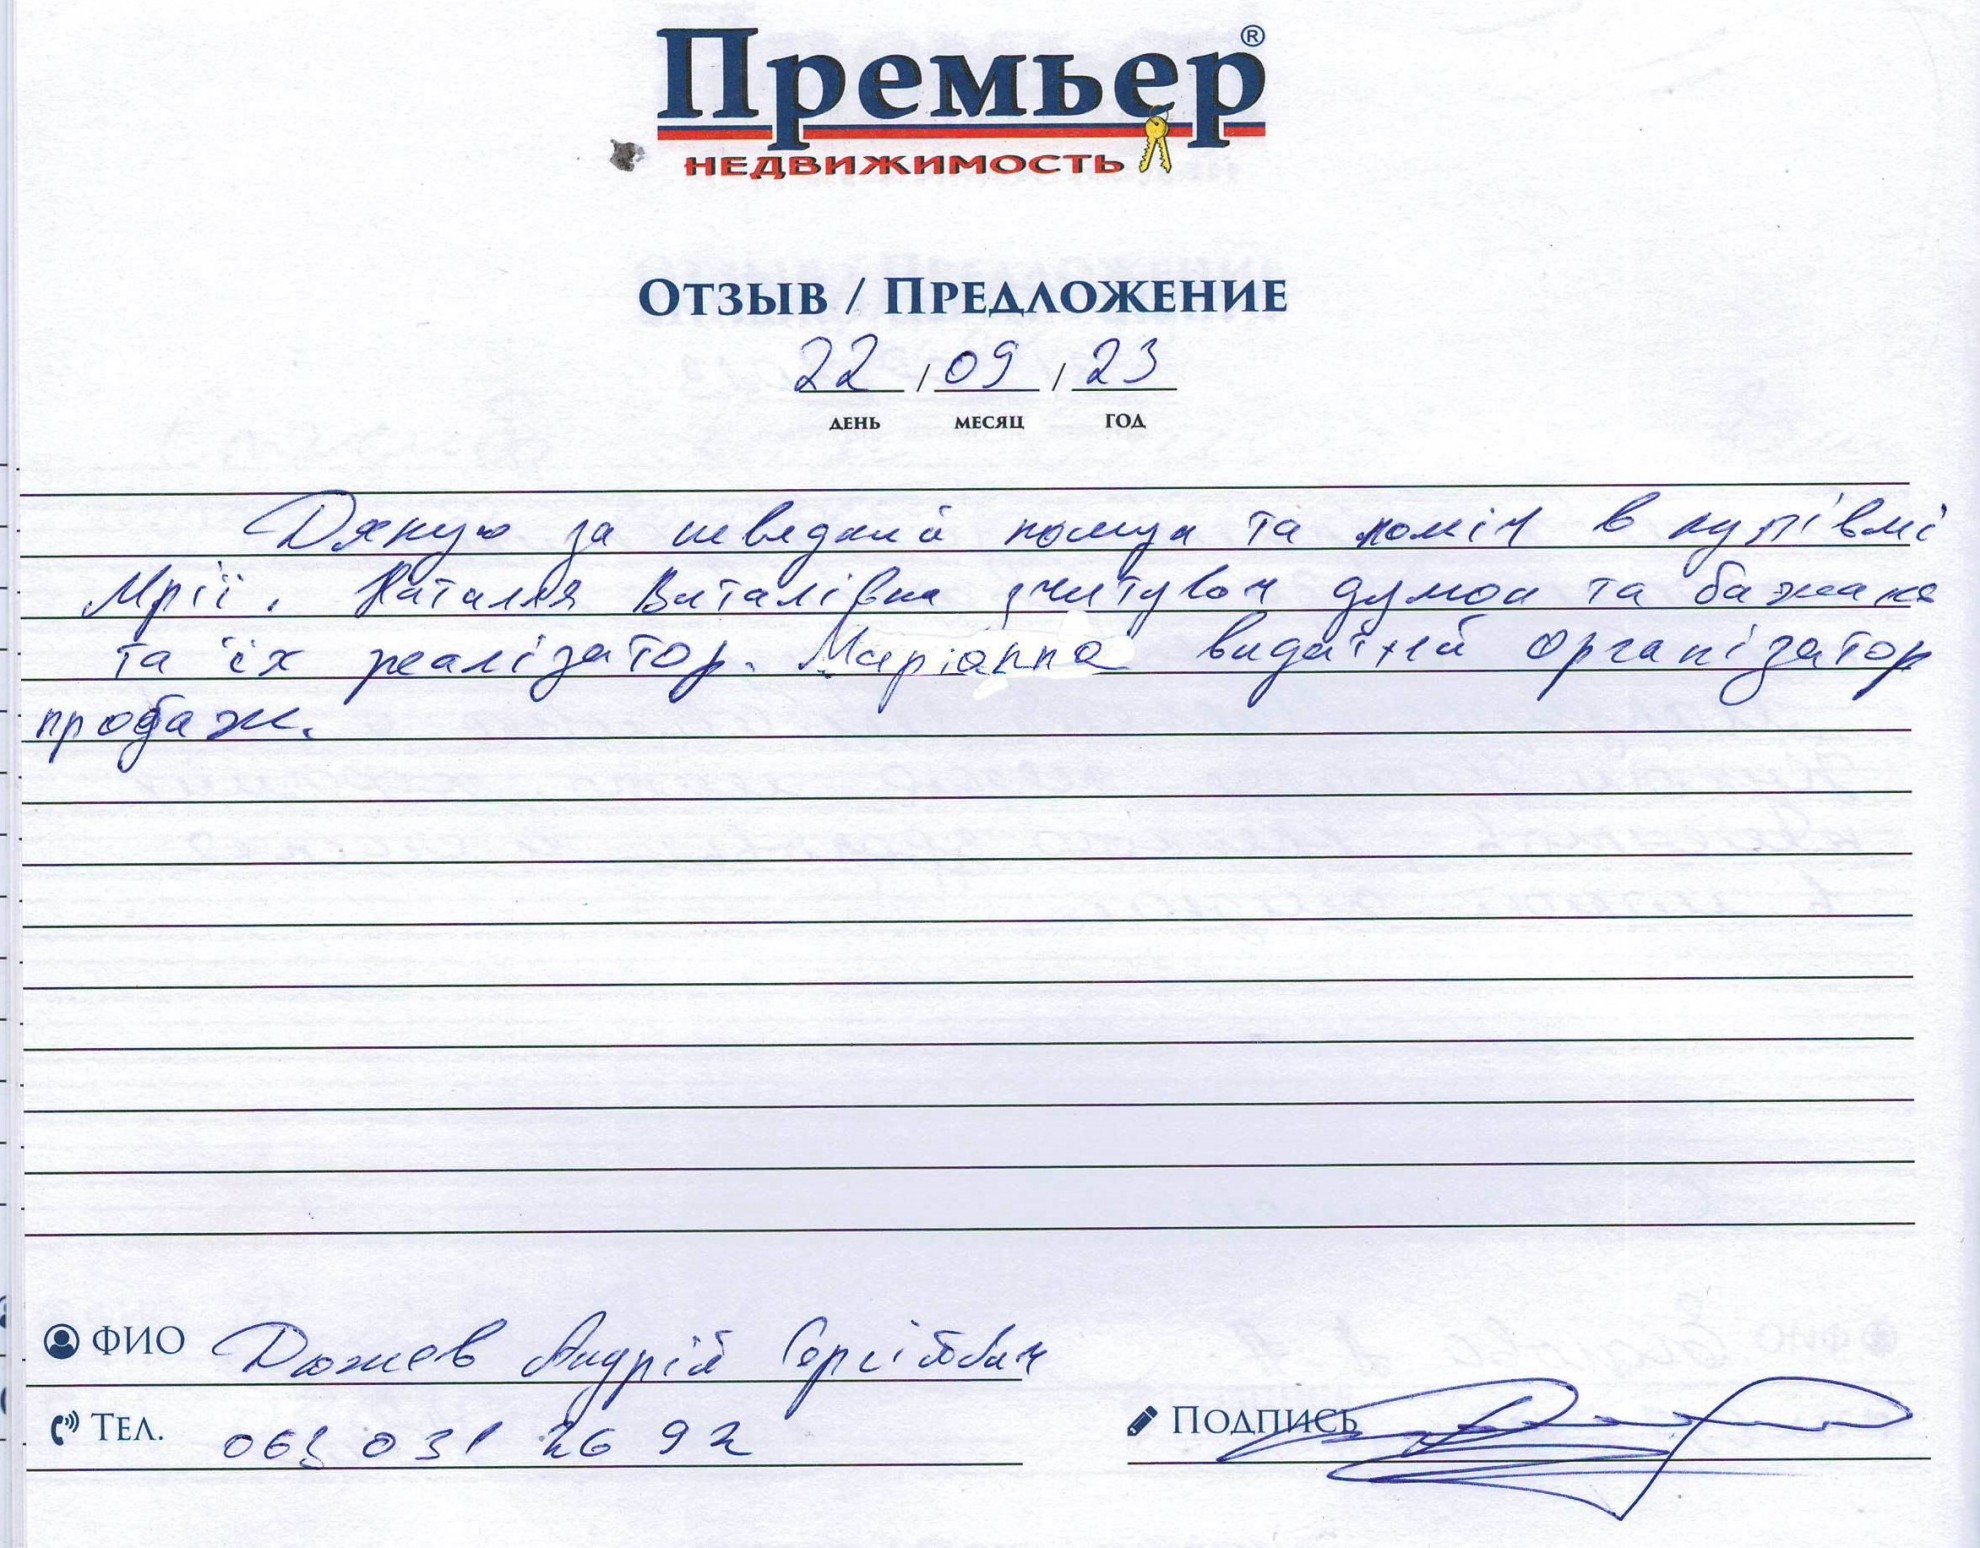 Премьер®
НЕДВИЖИМОСТЬ
Отзыв / Предложение
22 / 09 / 23
ДЕНЬ МЕСЯЦ ГОД
Дякую за швидкий пошук та поміч в купівлі
Мрії. Наталія Віталівна зчитувач думок та бажань
та їх реалізатор. Маріанна видатний організатор
продаж.
ФИО Дюжев Андрій Сергійович
Тел. 063 031 26 92
Подпись